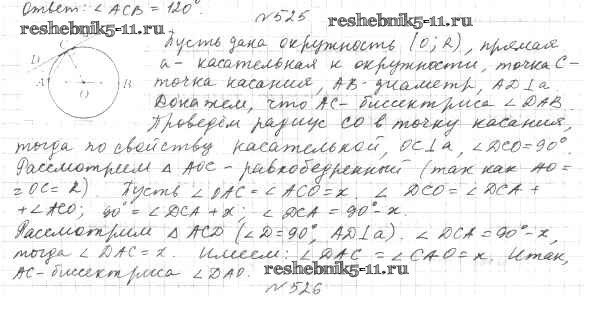 Ответ: ∠ACB = 120°.
N525
reshebnik5-11.ru
reshebnik5-11.ru
Пусть дана окружность (O; R), прямая
a - касательная к окружности, точка C -
точка касания, AB - диаметр, AD⊥a.
Докажем, что AC - биссектриса ∠DAB.
Проведём радиус CO в точку касания,
тогда по свойству касательной, OC⊥a, ∠DCO=90°.
Рассмотрим △ AOC - равнобедренный (так как AO=
=OC=R). Пусть ∠OAC=∠ACO=x, ∠DCO=∠DCA+
+∠ACO; 90°=∠DCA+x; ∠DCA=90°-x.
Рассмотрим △ ACD (∠D=90°, AD⊥a). ∠DCA=90°-x,
тогда ∠DAC=x. Имеем: ∠DAC=∠CAO=x. Итак,
AC - биссектриса ∠DAO.
reshebnik5-11.ru
N526
C
D
A
B
O